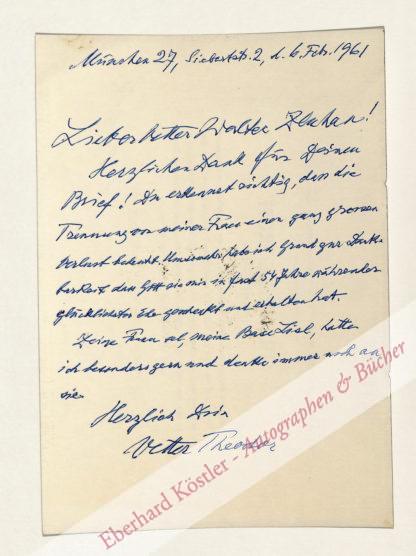 München 27, Siebertstr. 2, d. 6. Febr. 1961
Lieber Vetter Walter Bluhan!
Herzlichen Dank für Deinen
Brief! Du erkennst richtig, dass die
Trennung von meiner Frau einen ganz grossen
Verlust bedeutet. habe ich Grund zur Dank-
barkeit, dass Gott sie mir in fast 54 Jahre währender
glücklichster Ehe geschenkt und erhalten hat.
Deine Frau, meine Base Lisl, hatte
ich besonders gern und denke immer noch an
sie.
Herzlich Dein
Vetter Theodor
Eberhard Köstler - Autographen & Bücher